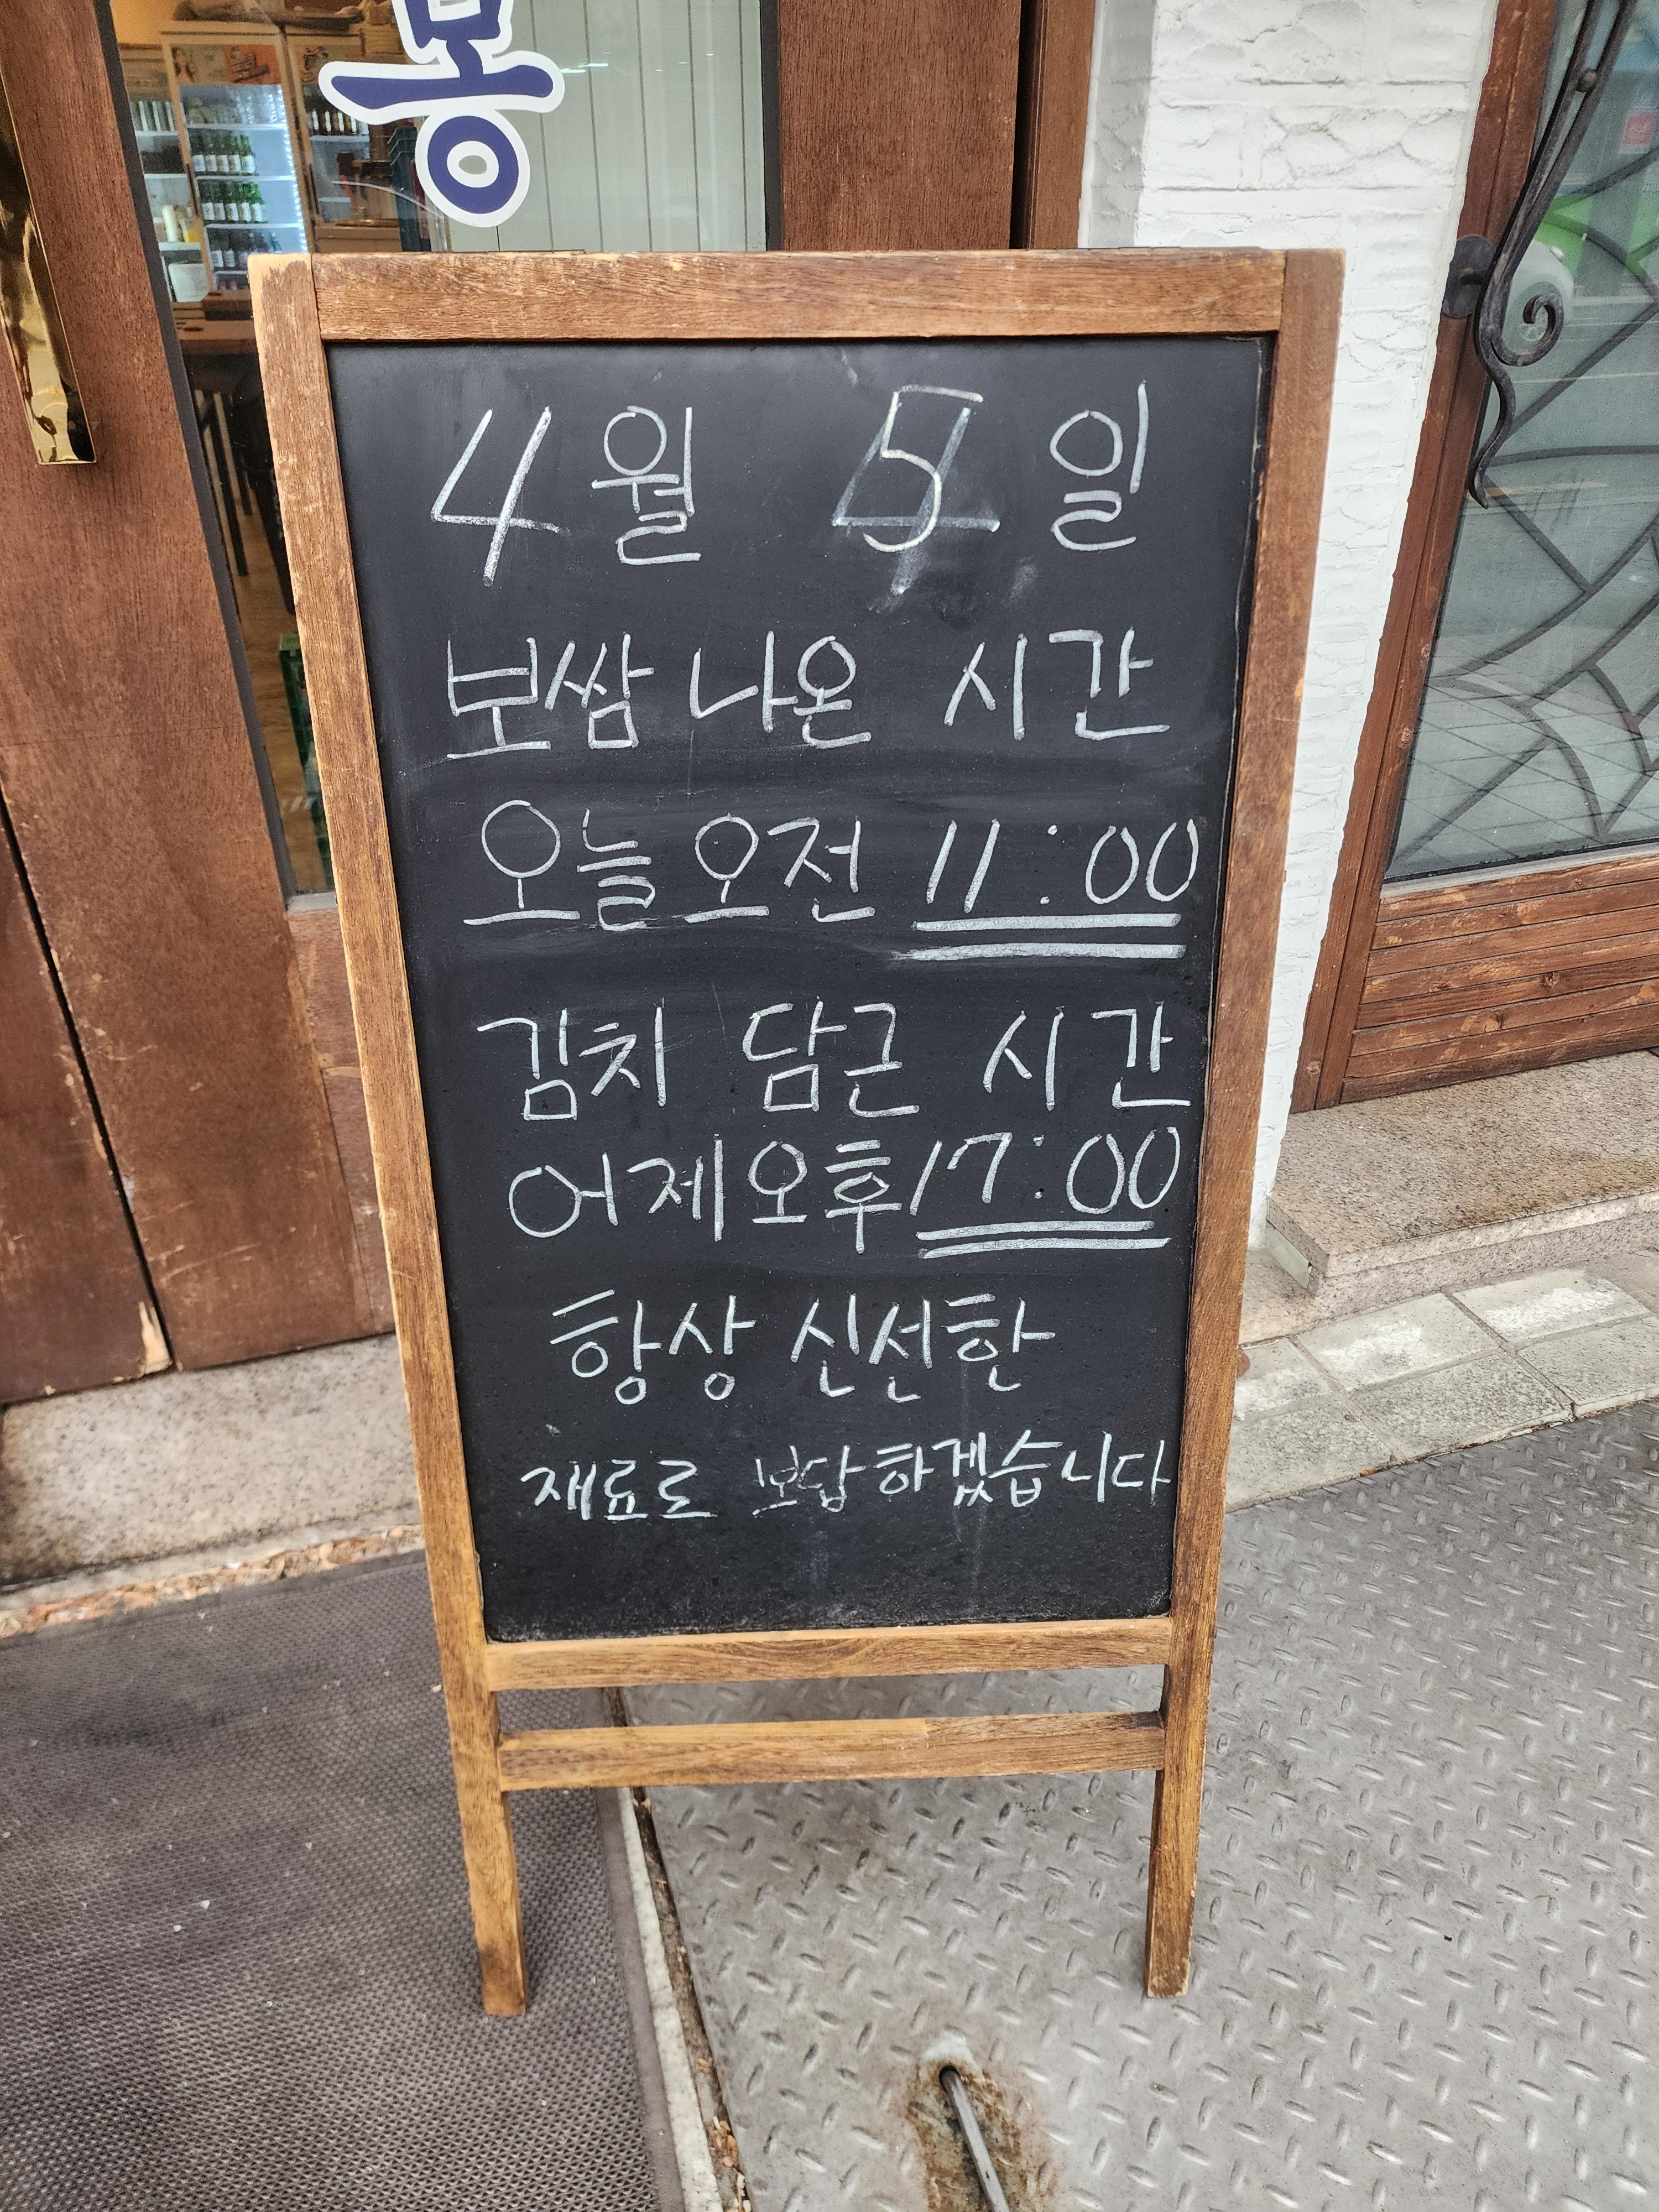 4월 5일
보쌈 나온 시간
오늘 오전 11:00
김치 담근 시간
어제 오후 17:00
항상 신선한
재료로 보답하겠습니다